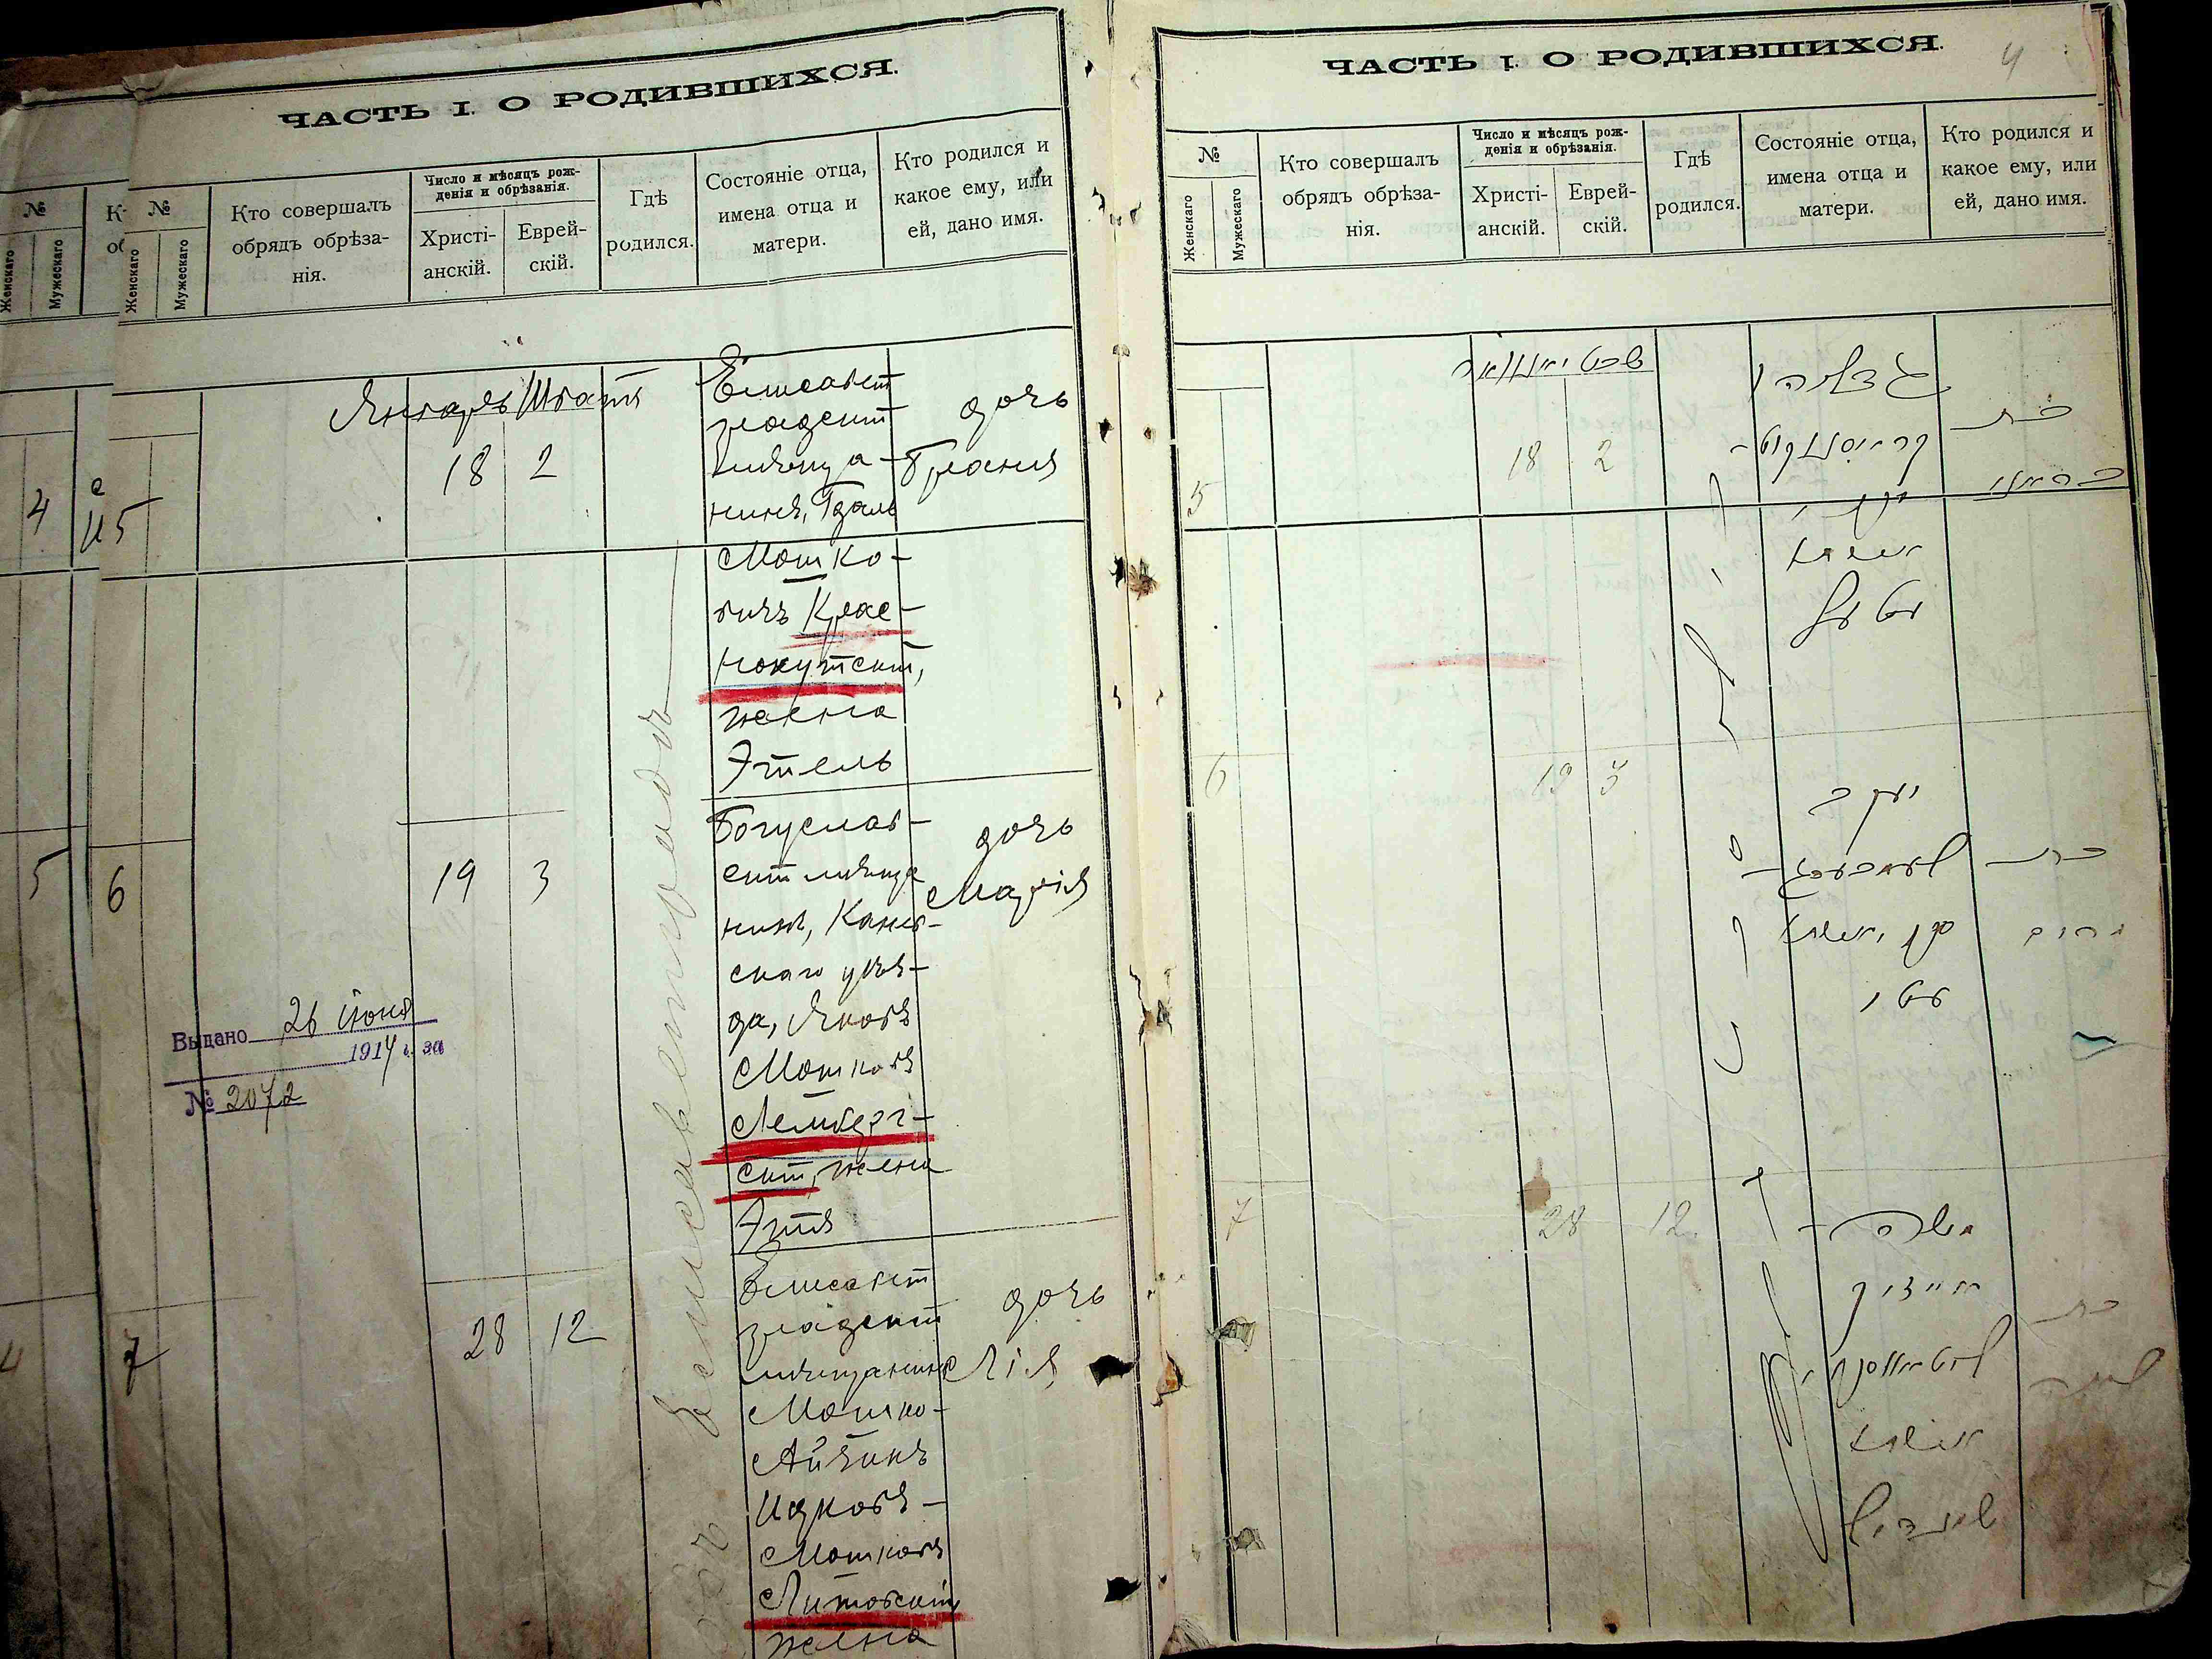 ЧАСТЬ I. О РОДИВШИХСЯ.
№
Женскаго
Мужескаго
№
Женскаго
Мужескаго
Кто совершалъ
обрядъ обрѣза-
нія.
Число и мѣсяцъ рож-
денія и обрѣзанія.
Христі-
анскій.
Еврей-
скій.
Гдѣ
родился.
Состояніе отца,
имена отца и
матери.
Кто родился и
какое ему, или
ей, дано имя.
Январь Шватъ
4
5
18
2
Елисавет
градскій
мѣщa-
нинъ, Гдаль
Мошко-
вичъ Крас-
нокутскій,
жена
Этель
дочь
Браня
5
6
19
3
Богуслав-
скій мѣща
нинъ, Канев-
скаго уѣз-
да, Яковъ
Мошковъ
Лемберг-
скій, жена
Этя
дочь
Марія
Выдано 26 іюня
1914 г. за
№ 2072
4
7
28
12
Елисавет
градскій
мѣщанинъ
Мошко-
Айзикъ
Ицковъ-
Мошковъ
Литовскій
жена
дочь
Лія
Елисаветградъ
ЧАСТЬ I. О РОДИВШИХСЯ.
4
№
Женскаго
Мужескаго
Кто совершалъ
обрядъ обрѣза-
нія.
Число и мѣсяцъ рож-
денія и обрѣзанія.
Христі-
анскій.
Еврей-
скій.
Гдѣ
родился.
Состояніе отца,
имена отца и
матери.
Кто родился и
какое ему, или
ей, дано имя.
5
18
2
גדליה
בת
אשתו
6
19
3
יעקב
בת
מרים
אשתו
7
28
12
משה
אייזיק
בת
אשתו